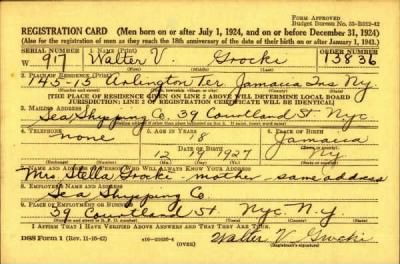 FORM APPROVED
Budget Bureau No. 33-R012-42
REGISTRATION CARD (Men born on or after July 1, 1924, and on or before December 31, 1924)
(Also for the registration of men as they reach the 18th anniversary of the date of their birth on or after January 1, 1943.)
SERIAL NUMBER 1. NAME (Print) ORDER NUMBER
W 917 Walter V. Grocki 13836
2. PLACE OF RESIDENCE (Print)
145-15 Arlington Ter Jamaica Ny.
[THE PLACE OF RESIDENCE GIVEN ON LINE 2 ABOVE WILL DETERMINE LOCAL BOARD
JURISDICTION; LINE 2 OF REGISTRATION CERTIFICATE WILL BE IDENTICAL]
3. MAILING ADDRESS
Sea Shipping Co. 39 Courtland St. Nyc
4. TELEPHONE 5. AGE IN YEARS 6. PLACE OF BIRTH
none 18 Jamaica
DATE OF BIRTH
12 1927 Ny
7. NAME AND ADDRESS OF PERSON WHO WILL ALWAYS KNOW YOUR ADDRESS
Mrs. Stella Grocki - mother - same address
8. EMPLOYER'S NAME AND ADDRESS
Sea Shipping Co.
9. PLACE OF EMPLOYMENT OR BUSINESS
39 Courtland St. Nyc N.Y.
I AFFIRM THAT I HAVE VERIFIED ABOVE ANSWERS AND THAT THEY ARE TRUE.
DSS Form 1 (Rev. 11-16-42) (OVER) Walter V Grocki
(Registrant's signature)